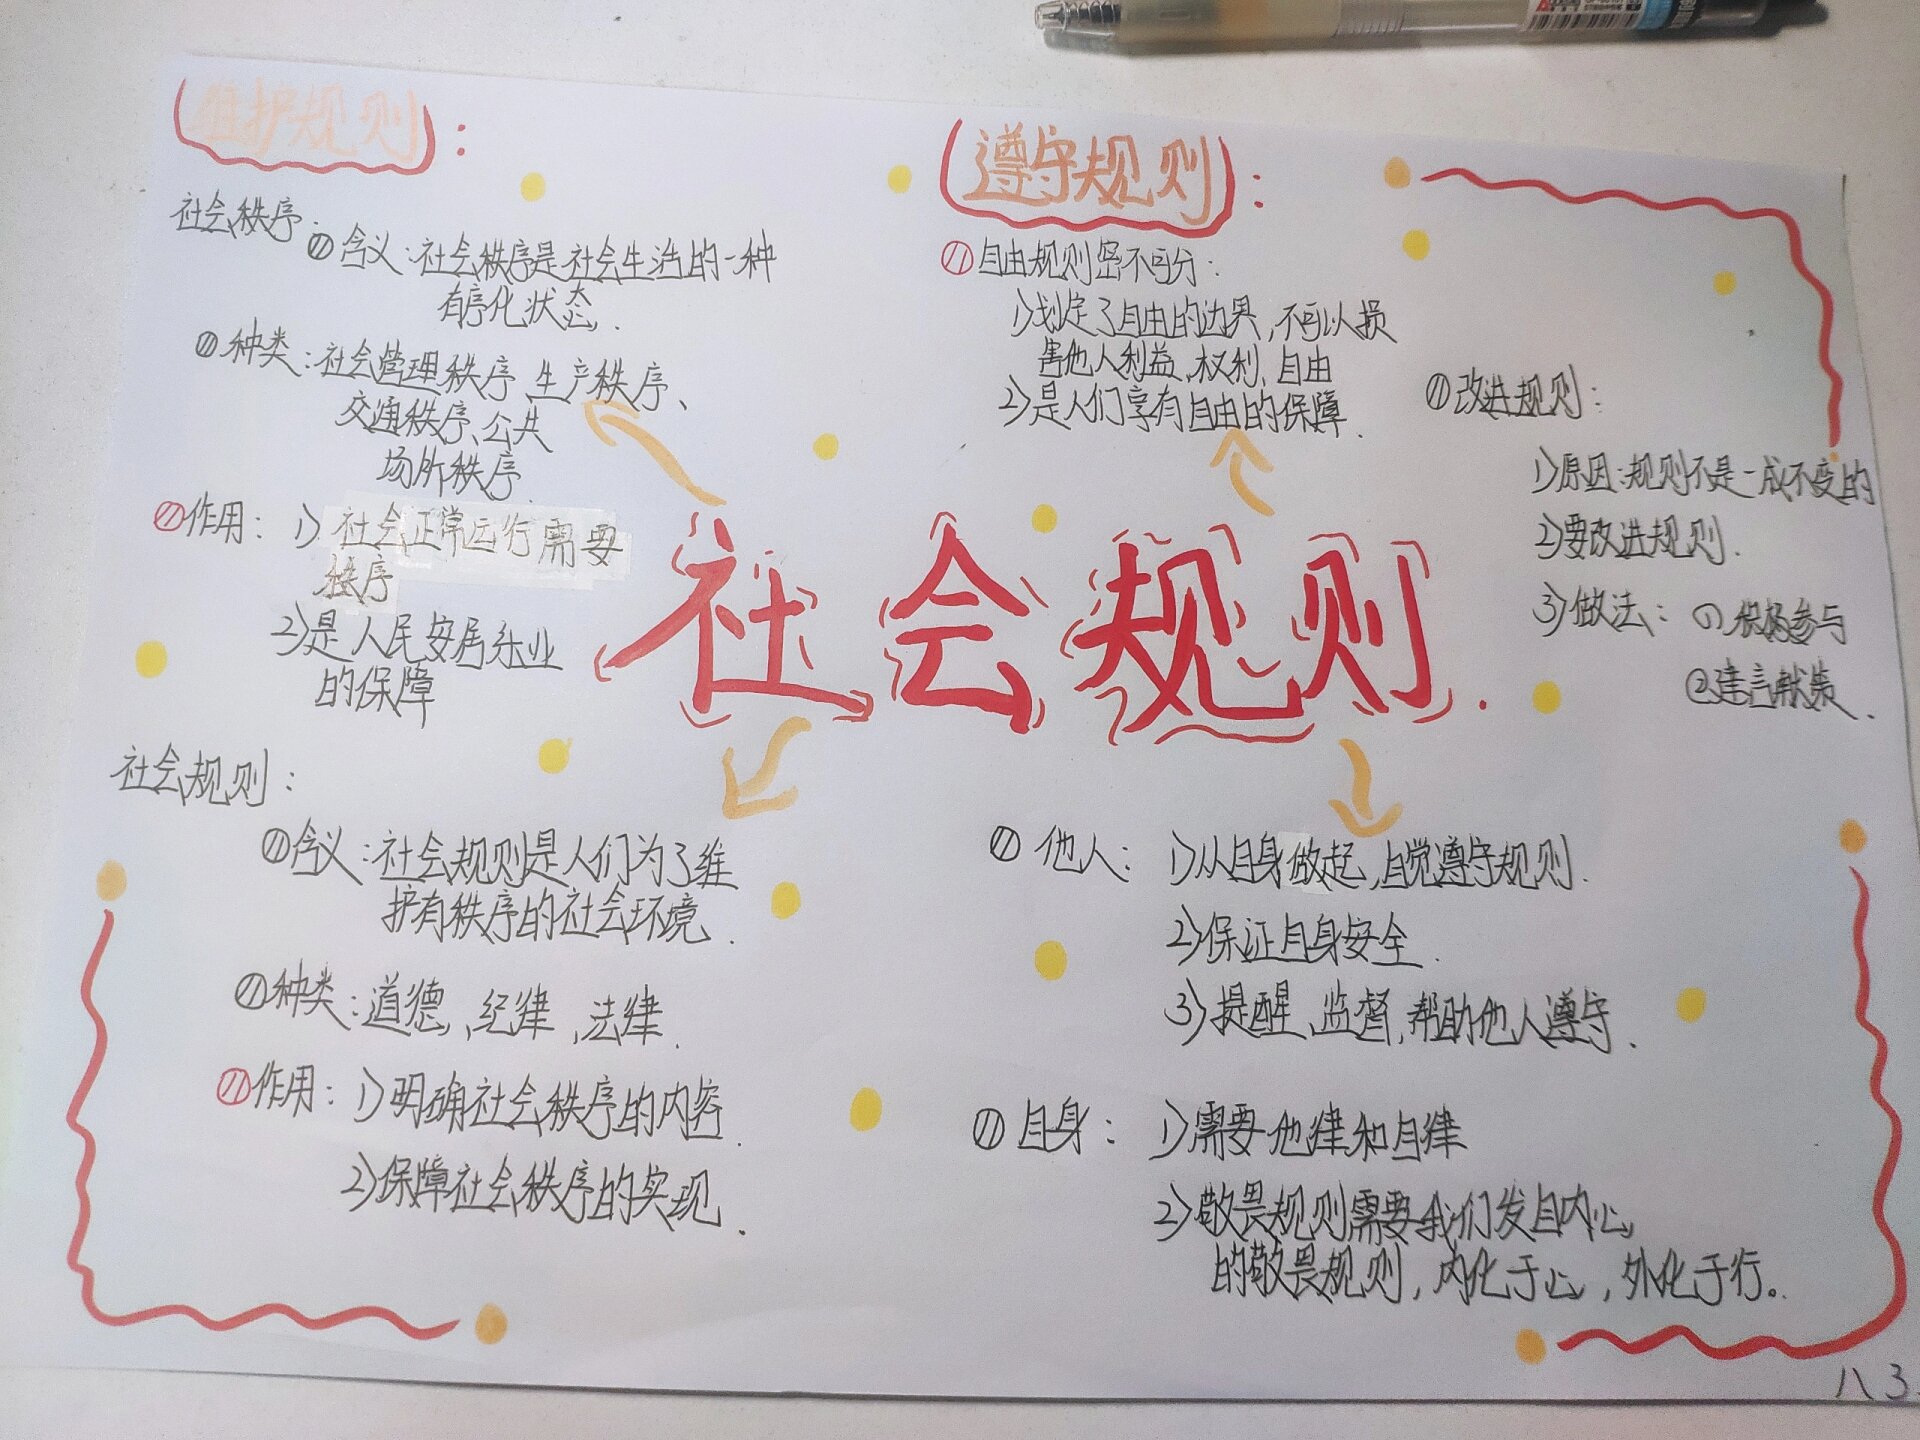 维护规则：
社会秩序：
①含义：社会秩序是社会生活的一种
有序化状态．
①种类：社会管理秩序、生产秩序、
交通秩序、公共
场所秩序．
①作用：1）社会正常运行需要
秩序
2）是人民安居乐业
的保障
社会规则：
①含义：社会规则是人们为了维
护有秩序的社会环境．
①种类：道德、纪律、法律．
①作用：1）明确社会秩序的内容．
2）保障社会秩序的实现．
社会规则．
遵守规则：
①自由规则密不可分：
1）划定了自由的边界，不可以损
害他人利益、权利、自由
2）是人们享有自由的保障．
①改进规则：
1）原因：规则不是一成不变的
2）要改进规则．
3）做法：①积极参与
②建言献策．
①他人：1）从自身做起，自觉遵守规则．
2）保证自身安全．
3）提醒、监督，帮助他人遵守．
①自身：1）需要他律和自律
2）敬畏规则需要我们发自内心
的敬畏规则，内化于心，外化于行。
八3